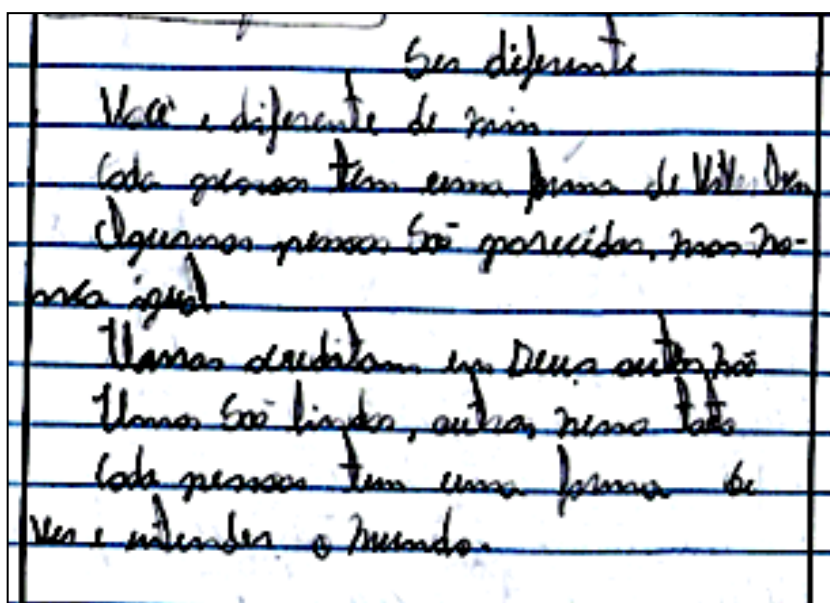 Ser diferente
Você e diferente de mim
Cada pessoa tem uma forma de viver bem
Algumas pessoas são parecidas, mas nu-
nca igual.
Umas acreditam em Deus outras não
Umas são lindas, outras nem tato
Cada pessoas tem uma forma de
ver e entender o mundo.